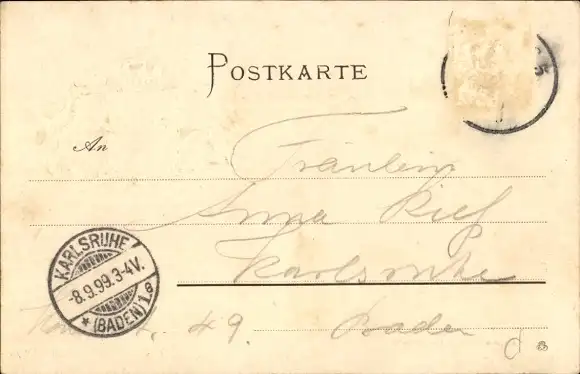 POSTKARTE
An
Fräulein
Anna Rief
Karlsruhe
49. Baden
KARLSRUHE
-8.9.99.3-4V.
* (BADEN) 1.e